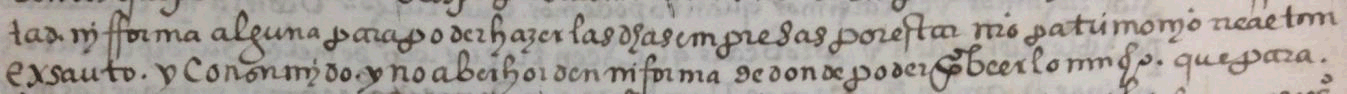 tad. ni fforma alguna para poder hazer las dhas empresas por estar nro patrimonio real tan
exsauto. y consumido. y no aber horden ni forma de donde poder probeerlo mucho. que para.